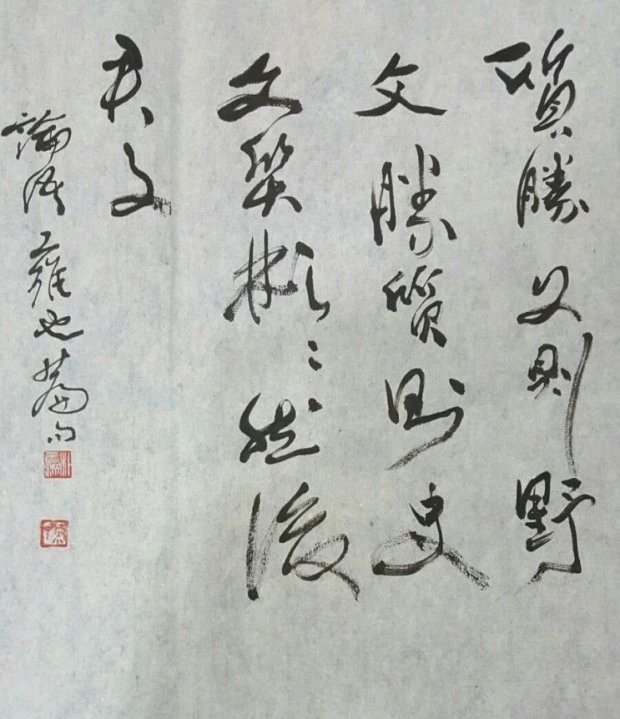 質勝文則野
文勝質則史
文質彬々然後
君子
論語雍也篇句